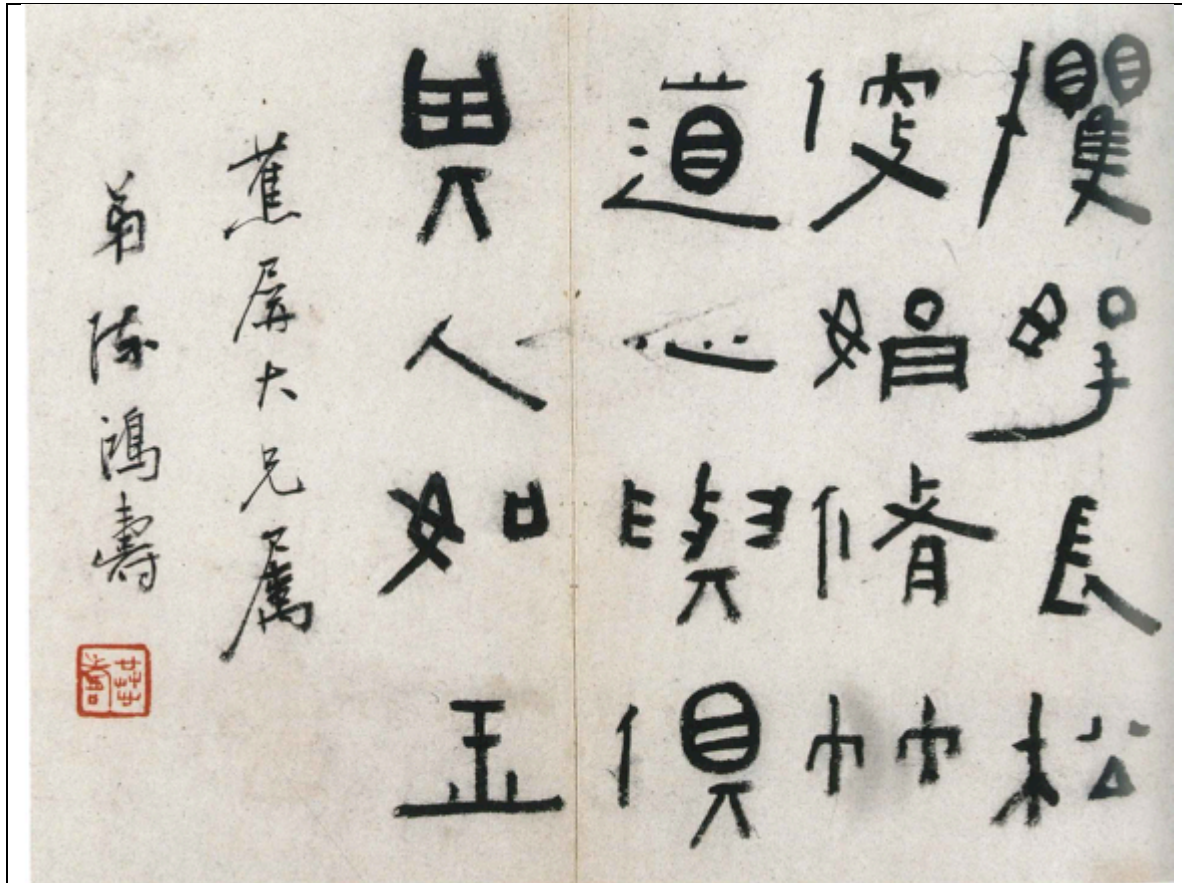 攫挐長松
便娟脩竹
道心與俱
異人如玉
蕉屏大兄属
弟陳鴻壽